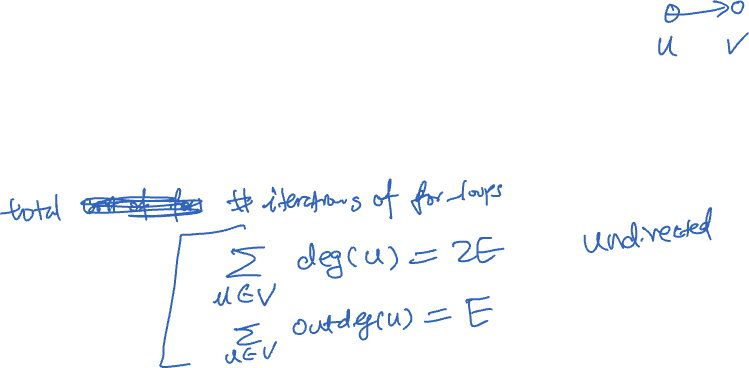 u v
total # iterations of for-loops
∑ deg(u) = 2E undirected
u∈V
∑ outdeg(u) = E
u∈V